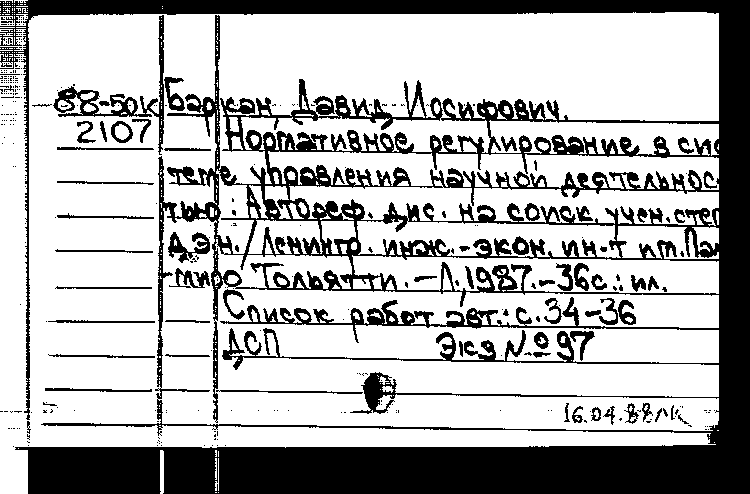 88-50к Баркан Давид Иосифович.
2107 Нормативное регулирование в сис
теме управления научной деятельнос-
тью : Автореф. дис. на соиск. учен. степ
д.э.н. / Ленингр. инж.-экон. ин-т им. Пал
-миро Тольятти. — Л., 1987. – 36с.: ил.
Список работ авт.: с. 34-36
ДСП Экз № 97
16.04.88